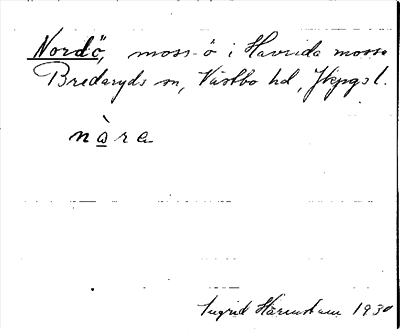 Nordö, moss-ö i Havrida mosse
Bredaryds sn, Västbo hd, Jkpgs l.
nàra
Ingrid Härenstam 1930